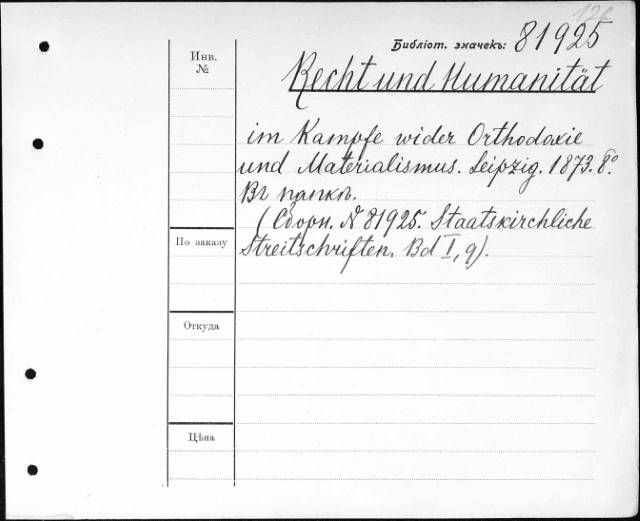 126
Библіот. значекъ: 81925
Инв.
№
Recht und Humanität
im Kampfe wider Orthodoxie
und Materialismus. Leipzig. 1873. 8º.
Въ папкѣ.
(Сборн. № 81925. Staatskirchliche
Streitschriften. Bd I, 9).
По заказу
Откуда
Цѣна